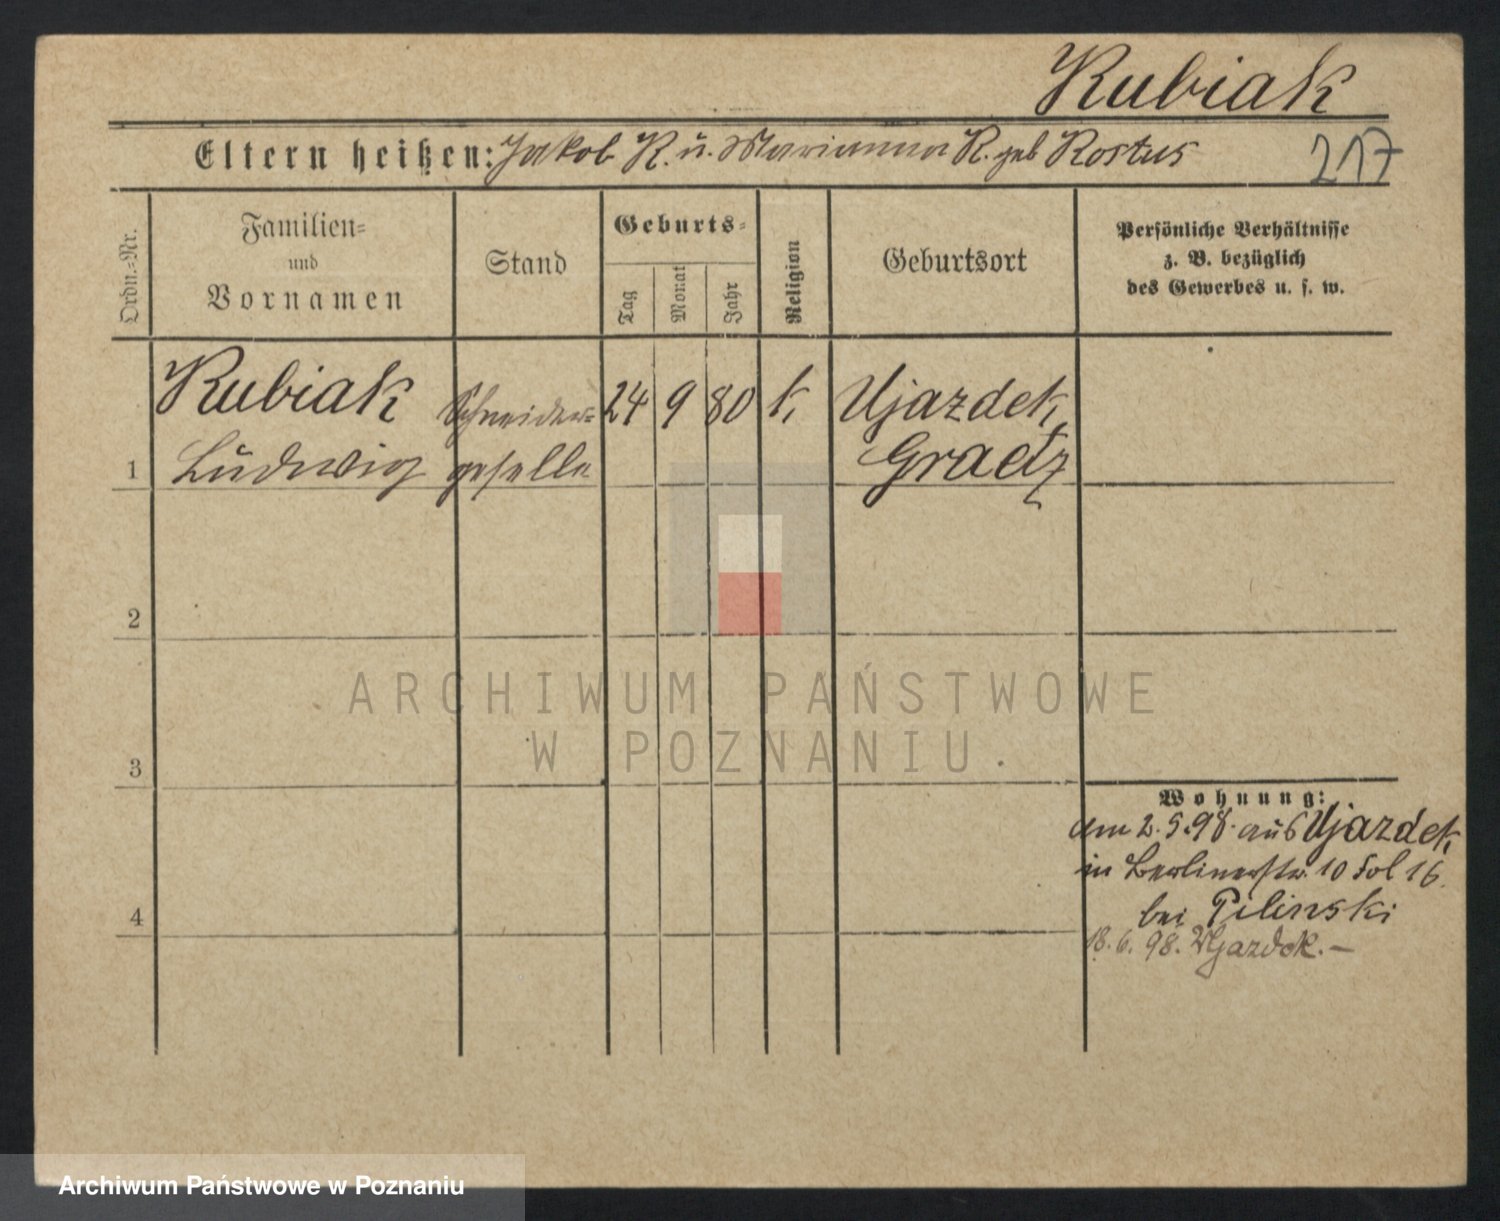 Kubiak
Eltern heißen: Jakob K. u. Marianna K. geb Rostus
217
Ordn.-Nr.
Familien-
und
Vornamen
Stand
Geburts-
Tag
Monat
Jahr
Religion
Geburtsort
Persönliche Verhältnisse
z. B. bezüglich
des Gewerbes u. s. w.
1
Kubiak
Ludwig
Schneider-
geselle
24
9
80
k.
Ujazdek,
Graetz
2
3
4
Wohnung:
am 2.5.98. aus Ujazdek,
in Berlinerstr. 10 Fol 16.
bei Pilinski
18.6.98. Ujazdek.—
ARCHIWUM PAŃSTWOWE
W POZNANIU
Archiwum Państwowe w Poznaniu